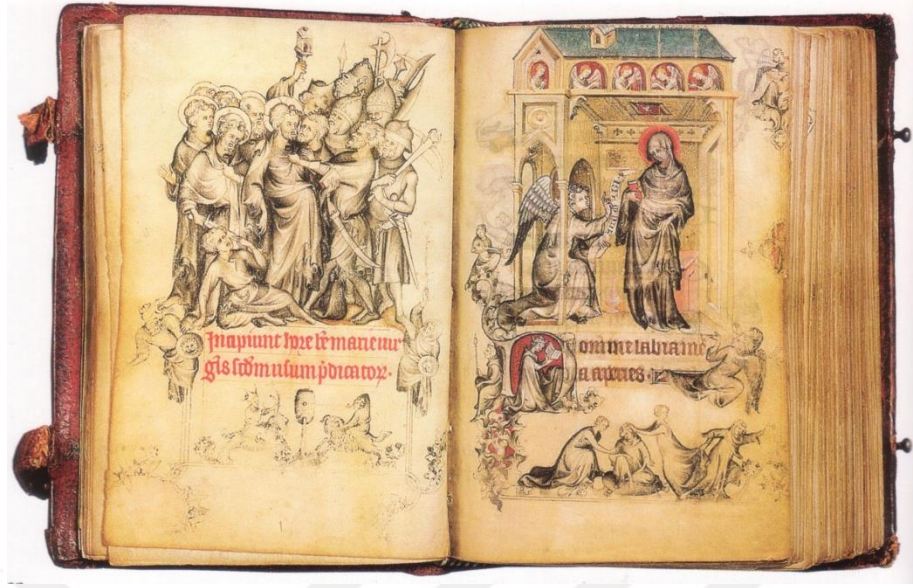 Incipiunt hore bẽ marie uir
gĩs scdm̃ usum p̃dicatoꝝ·
Domine labia me
a aperies·